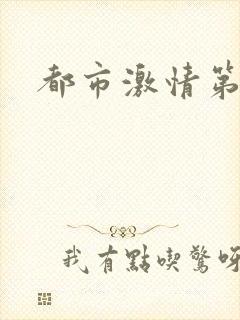 都市激情第
我有點喫驚呀